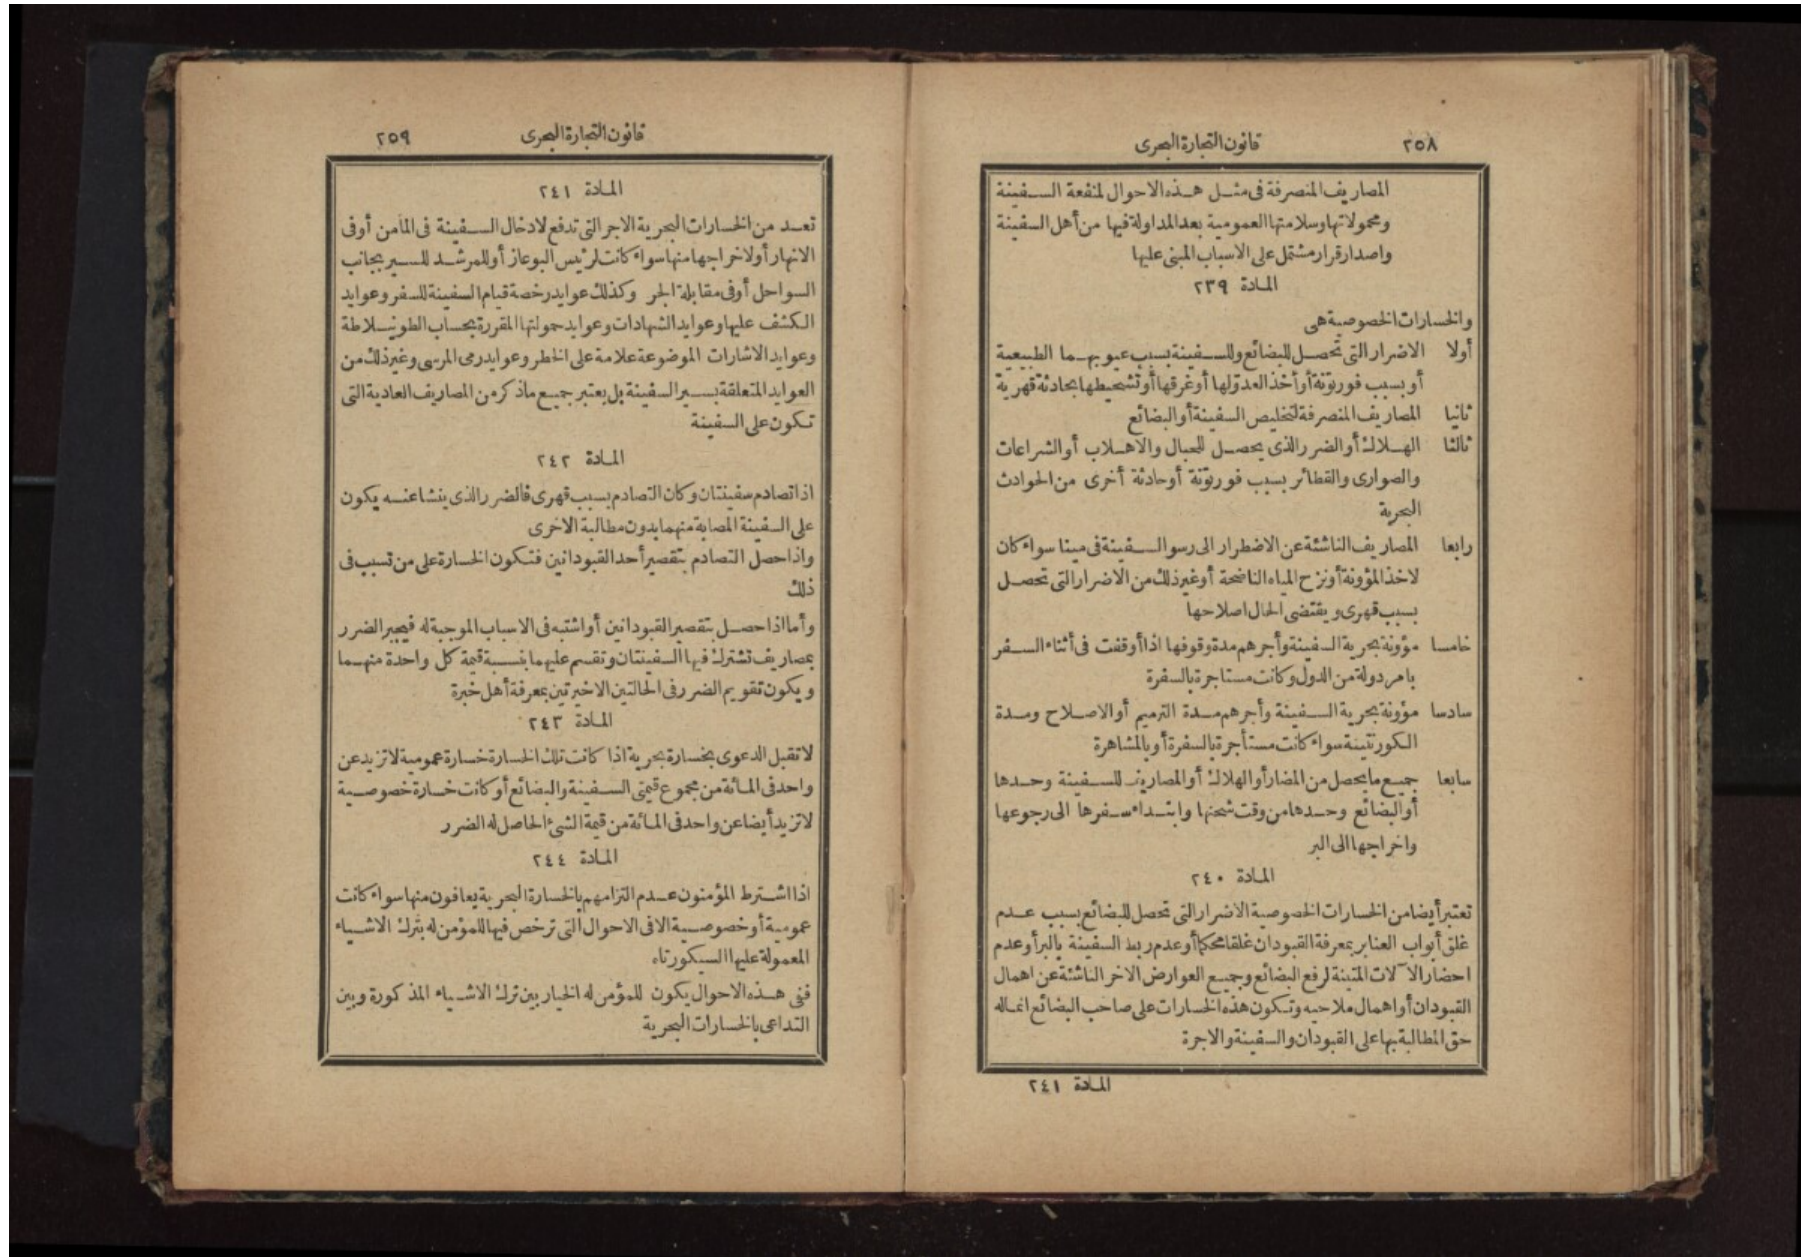 ٢٥٨
قانون التجارة البحرى
المصاريف المنصرفة فى مثل هذه الاحوال لمنفعة السفينة
ومحمولاتها وسلامتها العمومية بعد المداولة فيها من أهل السفينة
واصدار قرار مشتمل على الاسباب المبنى عليها
المادة ٢٣٩
والخسارات الخصوصية هى
أولا الاضرار التى تحصل للبضائع وللسفينة بسبب عيوبهما الطبيعية
أو بسبب فورتونة أو أخذ العدولها أو غرقها أو تشحيطها بحادثة قهرية
ثانيا المصاريف المنصرفة لتخليص السفينة أو البضائع
ثالثا الهلاك أو الضرر الذى يحصل للحبال والاهلاب أو الشراعات
والصوارى والقطائر بسبب فورتونة أو حادثة أخرى من الحوادث
البحرية
رابعا المصاريف الناشئة عن الاضطرار الى رسو السفينة فى مينا سواء كان
لاخذ المؤونة أو نزح المياه الناضحة أو غير ذلك من الاضرار التى تحصل
بسبب قهرى ويقتضى الحال اصلاحها
خامسا مؤونة بحرية السفينة وأجرهم مدة وقوفها اذا أوقفت فى أثناء السفر
بامر دولة من الدول وكانت مستاجرة بالسفرة
سادسا مؤونة بحرية السفينة وأجرهم مدة الترميم أو الاصلاح ومدة
الكورنتينة سواء كانت مستأجرة بالسفرة أو بالمشاهرة
سابعا جميع ما يحصل من المضار أو الهلاك أو المصاريف للسفينة وحدها
أو البضائع وحدها من وقت شحنها وابتداء سفرها الى رجوعها
واخراجها الى البر
المادة ٢٤٠
تعتبر أيضا من الخسارات الخصوصية الاضرار التى تحصل للبضائع بسبب عدم
غلق أبواب العنابر بمعرفة القبودان غلقا محكما أو عدم ربط السفينة بالبر أو عدم
احضار الآلات المتينة لرفع البضائع وجميع العوارض الاخر الناشئة عن اهمال
القبودان أو اهمال ملاحيه وتكون هذه الخسارات على صاحب البضائع انما له
حق المطالبة بها على القبودان والسفينة والاجرة
المادة ٢٤١
٢٥٩
قانون التجارة البحرى
المادة ٢٤١
تعد من الخسارات البحرية الاجر التى تدفع لادخال السفينة فى المآمن أو فى
الانهار أو لاخراجها منها سواء كانت لرئيس البوعاز أو للمرشد للسير بجانب
السواحل أو فى مقابلة الجر وكذلك عوايد رخصة قيام السفينة للسفر وعوايد
الكشف عليها وعوايد الشهادات وعوايد حمولتها المقررة بحساب الطونيلاطة
وعوايد الاشارات الموضوعة علامة على الخطر وعوايد رمى المرسى وغير ذلك من
العوايد المتعلقة بسير السفينة بل يعتبر جميع ما ذكر من المصاريف العادية التى
تكون على السفينة
المادة ٢٤٢
اذا تصادم سفينتان وكان التصادم بسبب قهرى فالضرر الذى ينشا عنه يكون
على السفينة المصابة منهما بدون مطالبة الاخرى
واذا حصل التصادم بتقصير أحد القبودانين فتكون الخسارة على من تسبب فى
ذلك
وأما اذا حصل بتقصير القبودانين أو اشتبه فى الاسباب الموجبة له فيجبر الضرر
بمصاريف تشترك فيها السفينتان وتقسم عليهما بنسبة قيمة كل واحدة منهما
ويكون تقويم الضرر فى الحالتين الاخيرتين بمعرفة أهل خبرة
المادة ٢٤٣
لا تقبل الدعوى بخسارة بحرية اذا كانت تلك الخسارة خسارة عمومية لا تزيد عن
واحد فى المائة من مجموع قيمتى السفينة والبضائع أو كانت خسارة خصوصية
لا تزيد أيضا عن واحد فى المائة من قيمة الشئ الحاصل له الضرر
المادة ٢٤٤
اذا اشترط المؤمنون عدم التزامهم بالخسارة البحرية يعافون منها سواء كانت
عمومية أو خصوصية الا فى الاحوال التى ترخص فيها للمؤمن له بترك الاشياء
المعمولة عليها السيكورتاه
ففى هذه الاحوال يكون للمؤمن له الخيار بين ترك الاشياء المذكورة وبين
التداعى بالخسارات البحرية